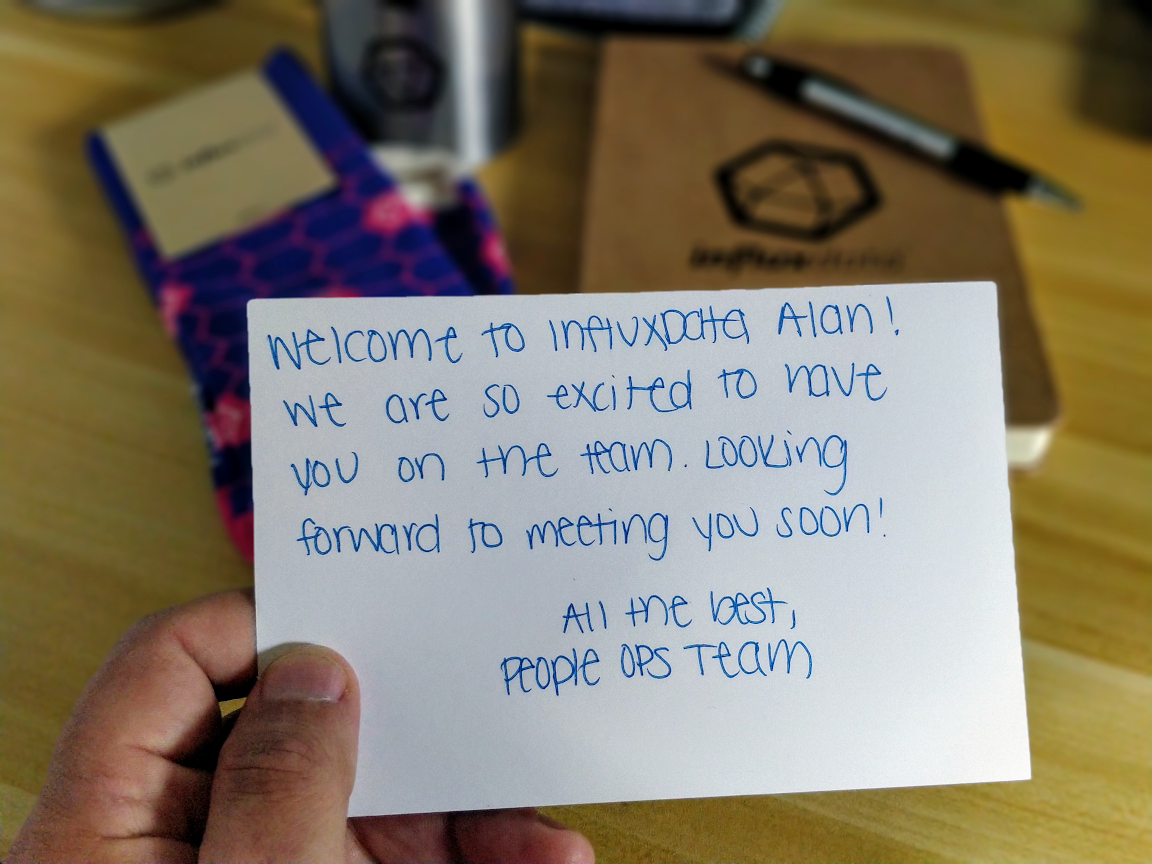 influxdata
Welcome to InfluxData Alan!
We are so excited to have
you on the team. Looking
forward to meeting you soon!
All the best,
People Ops Team